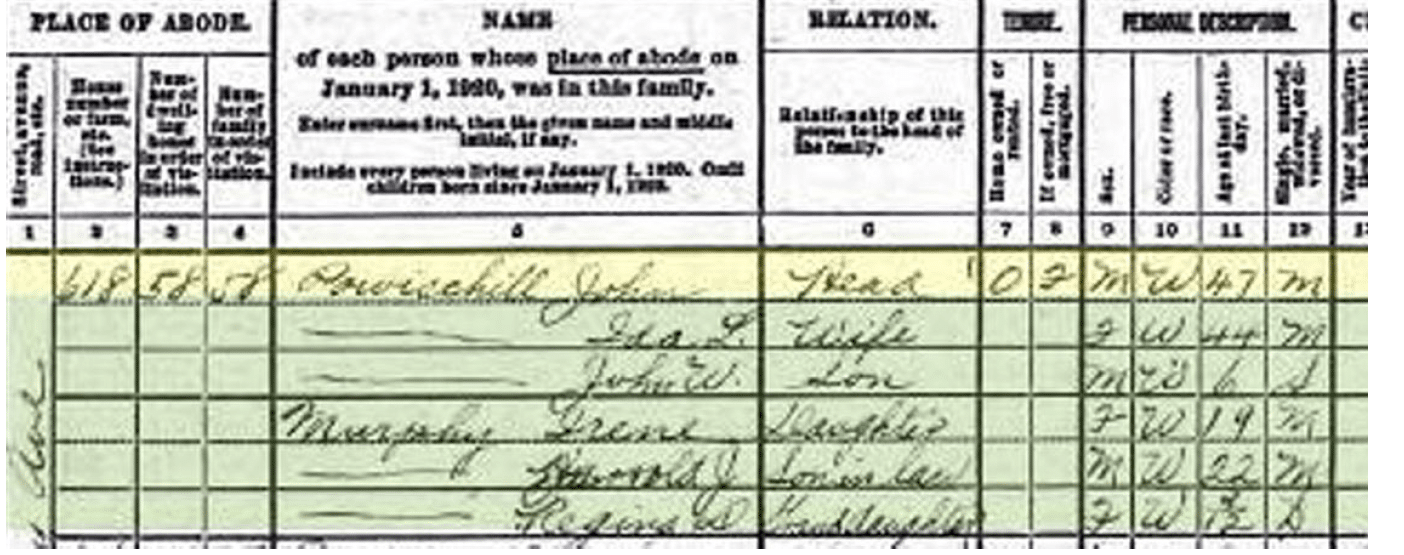 PLACE OF ABODE.
NAME
of each person whose place of abode on
January 1, 1920, was in this family.
Enter surname first, then the given name and middle
initial, if any.
Include every person living on January 1, 1920. Omit
children born since January 1, 1920.
RELATION.
Relationship of this
person to the head of
the family.
TENURE.
PERSONAL DESCRIPTION.
Street, avenue,
road, etc.
House
number
or farm,
etc.
(See
instruc-
tions.)
Num-
ber of
dwell-
ing
house
in order
of vis-
itation.
Num-
ber of
family
in order
of vis-
itation.
Home owned or
rented.
If owned, free or
mortgaged.
Sex.
Color or race.
Age at last birth-
day.
Single, married,
widowed, or di-
vorced.
Year of immigra-
1 2 3 4 5 6 7 8 9 10 11 12
618 58 58 John Head O F M W 47 M
Ida L. Wife F W 44 M
John W. Son M W 6 S
Murphy Irene Daughter F W 19 M
Harrold J Son in law M W 22 M
Regina D Granddaughter F W S